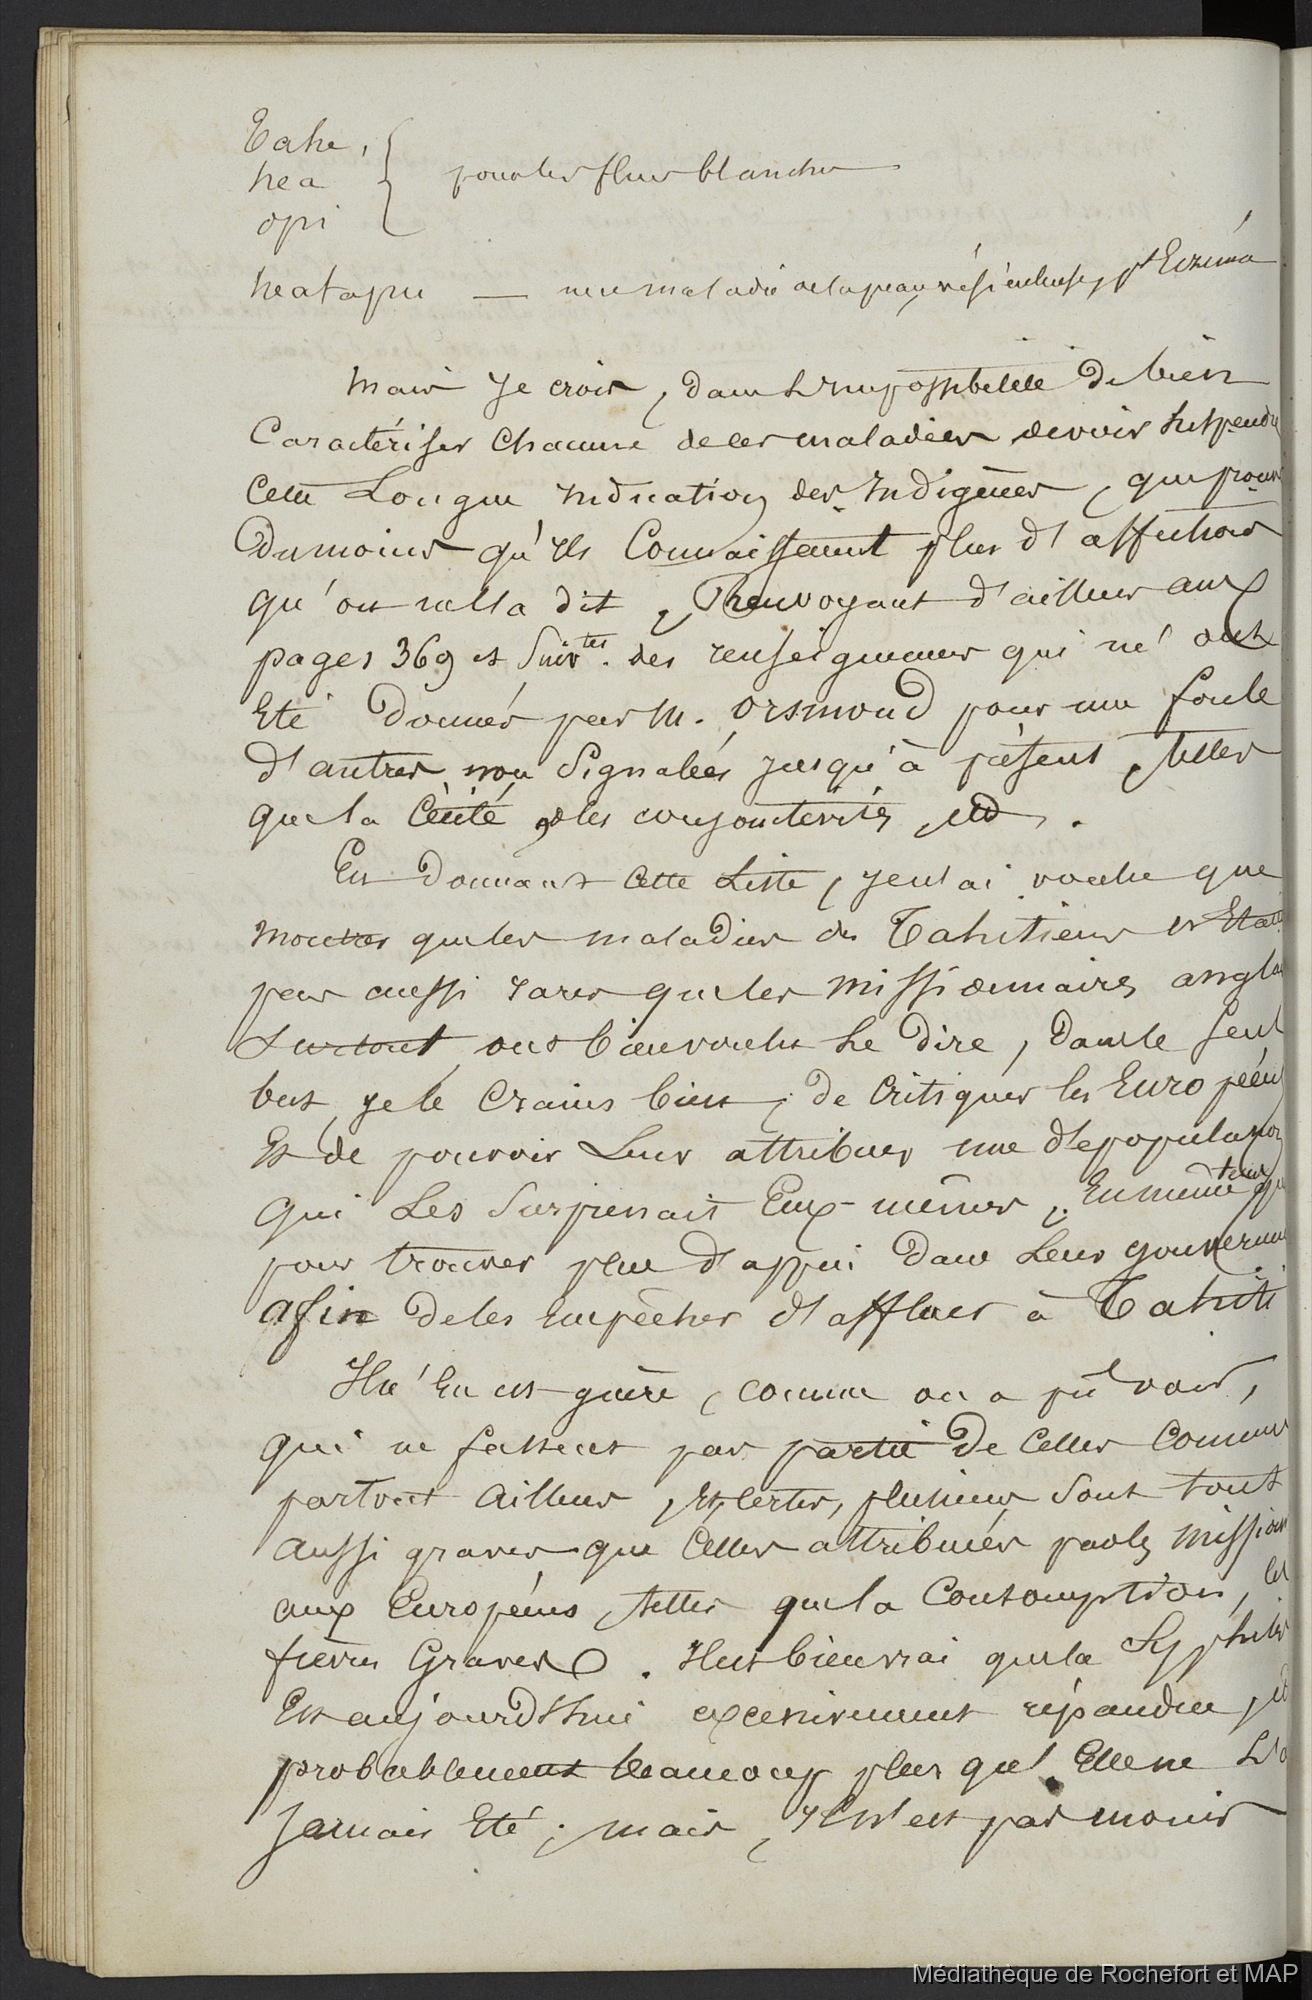 Tahe,
hea } pour les flueurs blanches
opi
heatapu — une maladie de la peau, vésiculeuse, pt Eczéma
Mais je crois, dans L'impossibilité de bien
Caractériser chacune de ces maladies devoir suspendre
cette Longue indication des Indigènes, qui prouve
Du moins qu'ils Connaissaient plus d'affections
qu'on ne l'a dit, Renvoyant d'ailleurs aux
pages 369 et suivtes. des renseignemens qui m'ont
Eté donnés par M. Orsmond pour une foule
d'autres non signalées jusqu'à présent, telles
que la Cécité, les conjonctivites, etc.
En Donnant cette Liste, je n'ai voulu que
montrer que les maladies des Tahitiens n'Etaient
pas aussi rares que les missionnaires anglais
Surtout, ont bien voulu Le dire, dans le seul
but, je le Crains bien, de Critiquer les Européens
Et de pouvoir Leur attribuer une dépopulation
qui Les Surprenait Eux-mêmes, En même tems que
pour trouver plus d'appui Dans Leur gouvernement
afin de les Empêcher d'affluer à Tahiti
Il n'En est guère, comme on a pu voir,
qui ne fassent pas partie de Celles Communes
partout Ailleurs, Et, Certes, plusieurs sont tout
aussi graves que Celles attribuées par les mission
aux Européens, telles que la Consomption, les
fièvres Graves. Il est bien vrai que la Syphilis
Est aujourd'hui excessivement répandue, et
probablement beaucoup plus qu'Elle ne L'a
Jamais Eté; mais, il n'est pas moins
Médiathèque de Rochefort et MAP